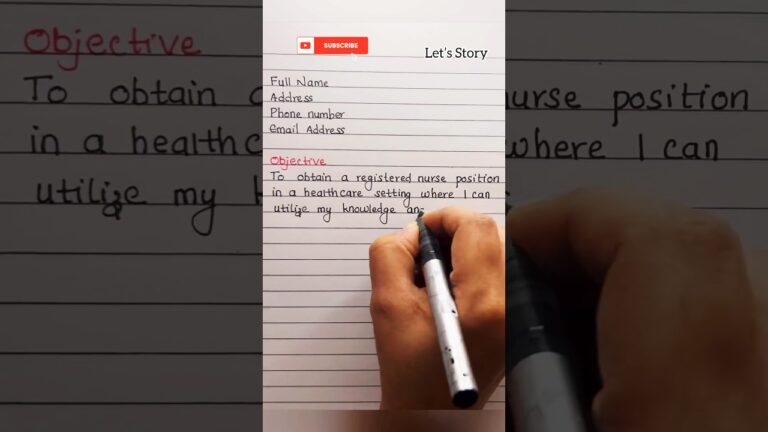 SUBSCRIBE
Let's Story
Full Name
Address
Phone number
Email Address
Objective
To obtain a registered nurse position
in a healthcare setting where I can
utilize my knowledge an
Objective
To obtain
in a healthc
utilize my
nurse position
where I can